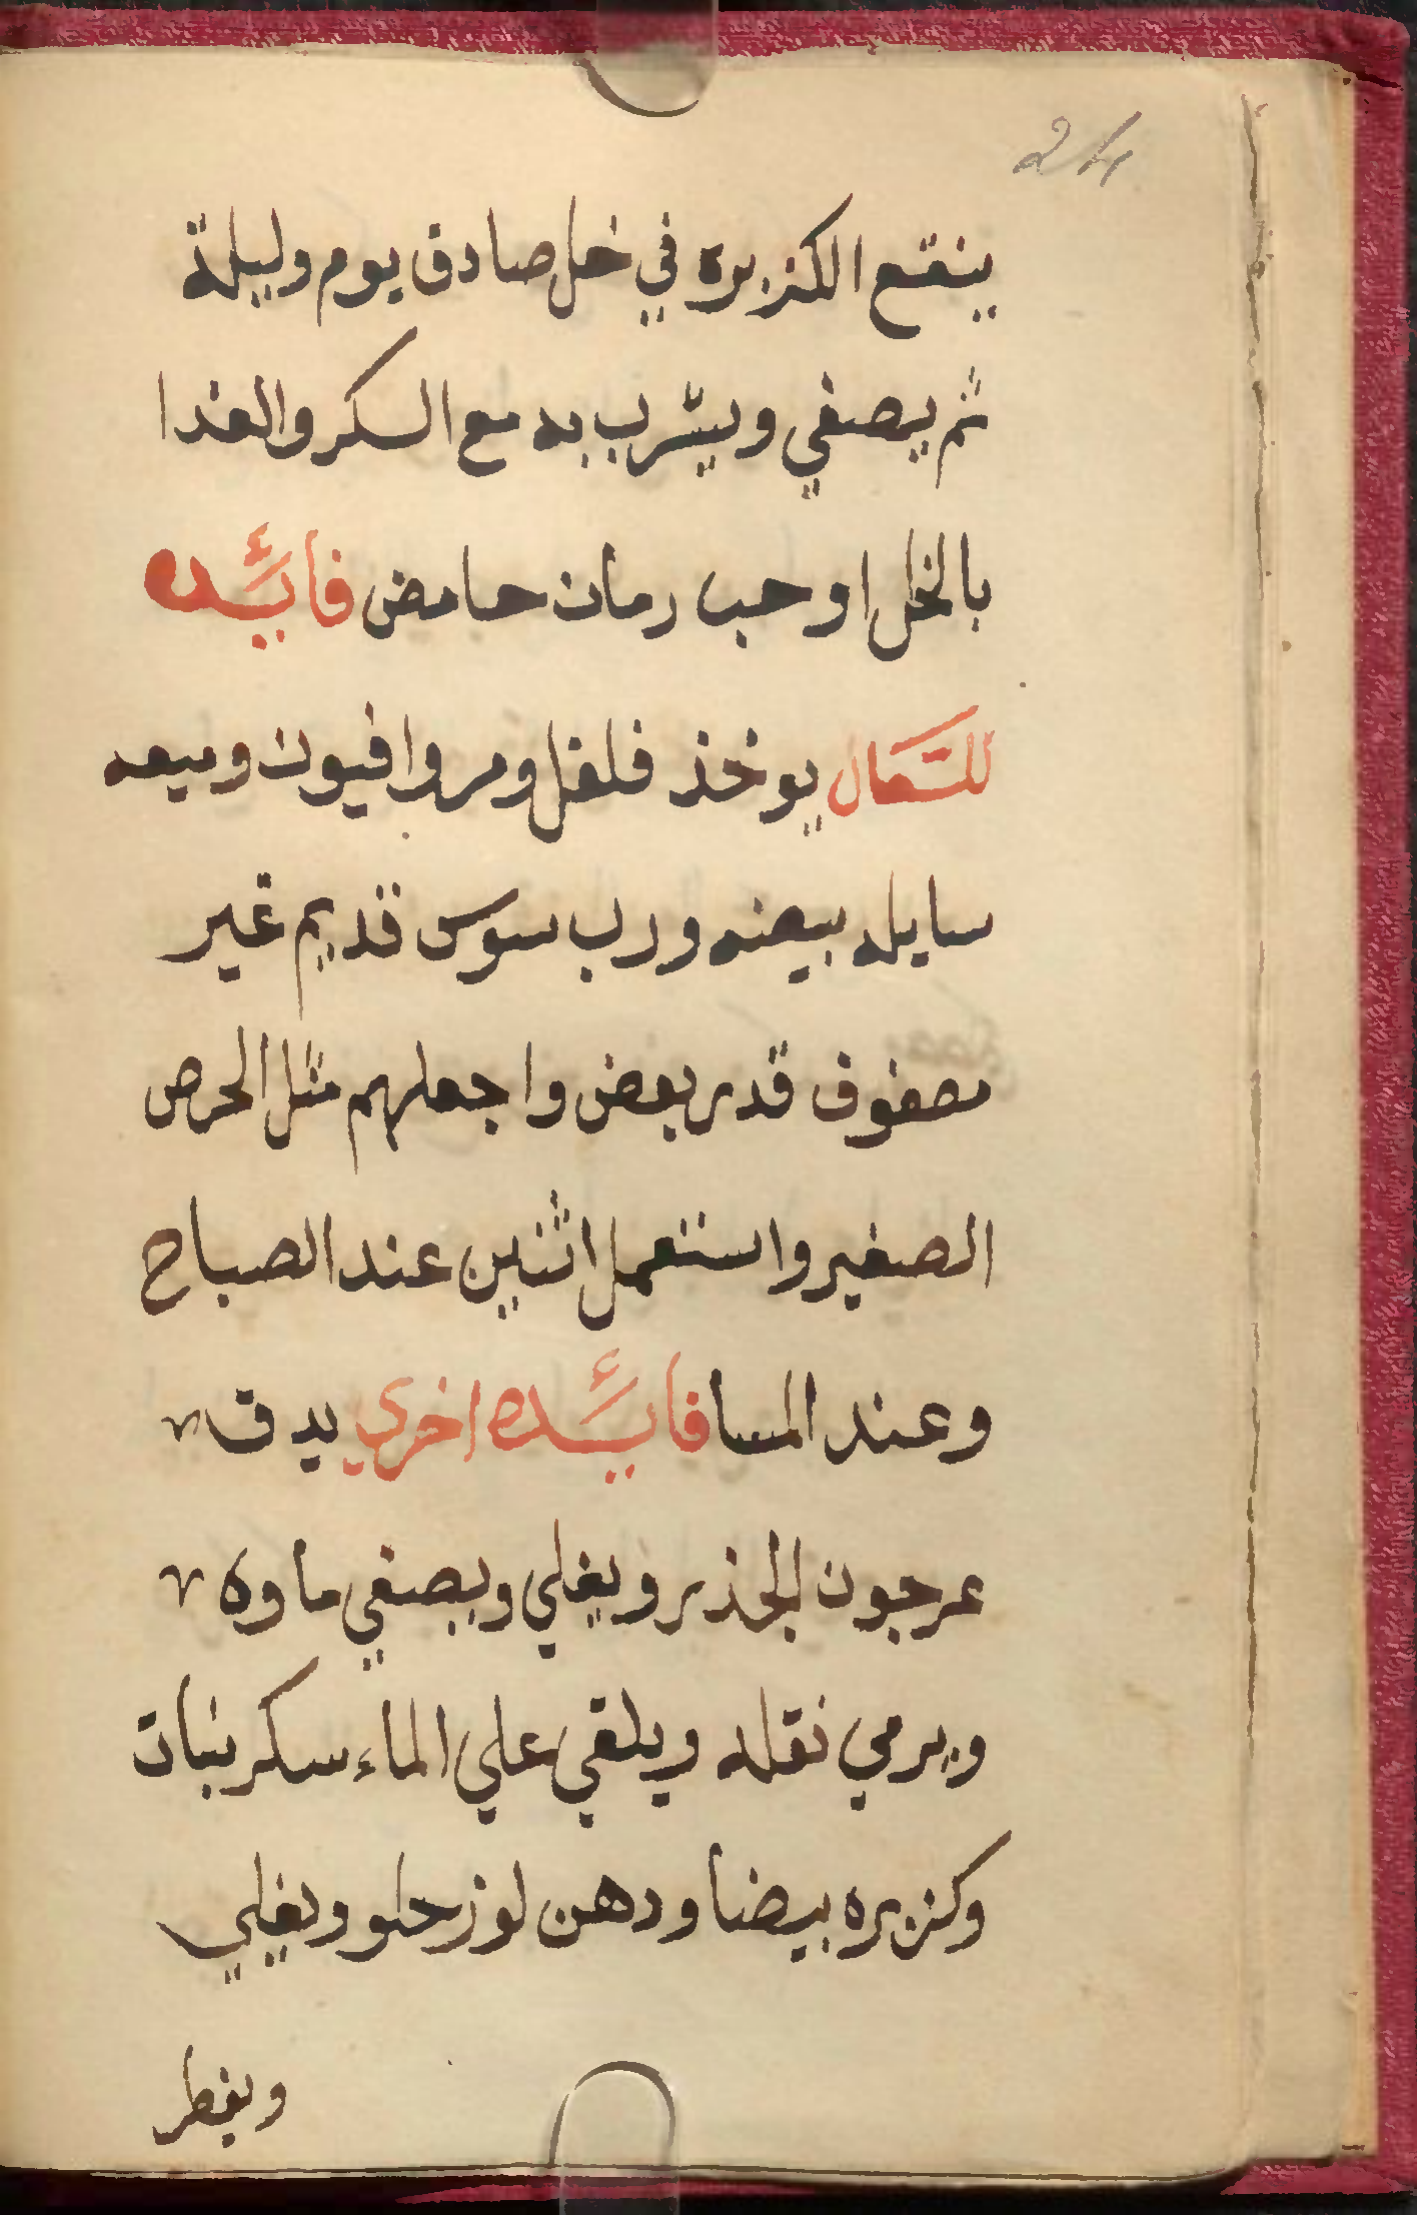 24
ينقع الكزبره في خل صادق يوم وليلة
ثم يصفي ويشرب به مع السكر والغدا
بالخل او حب رمان حامض فائَده
للسَعال يوخذ فلفل ومر وافيون وميعه
سايله بيعنه ورب سوس قديم غير
مصفوف قدر بعض واجعلهم مثل الحرص
الصغير واستعمل اثنين عند الصباح
وعند المسا فائَده اخري يدق
عرجون الجذر ويغلي ويصفي ماوه
ويرمي نقله ويلقي علي الماء سكر نبات
وكزبره بيضا ودهن لوز حلو ويغلي
ويفطر